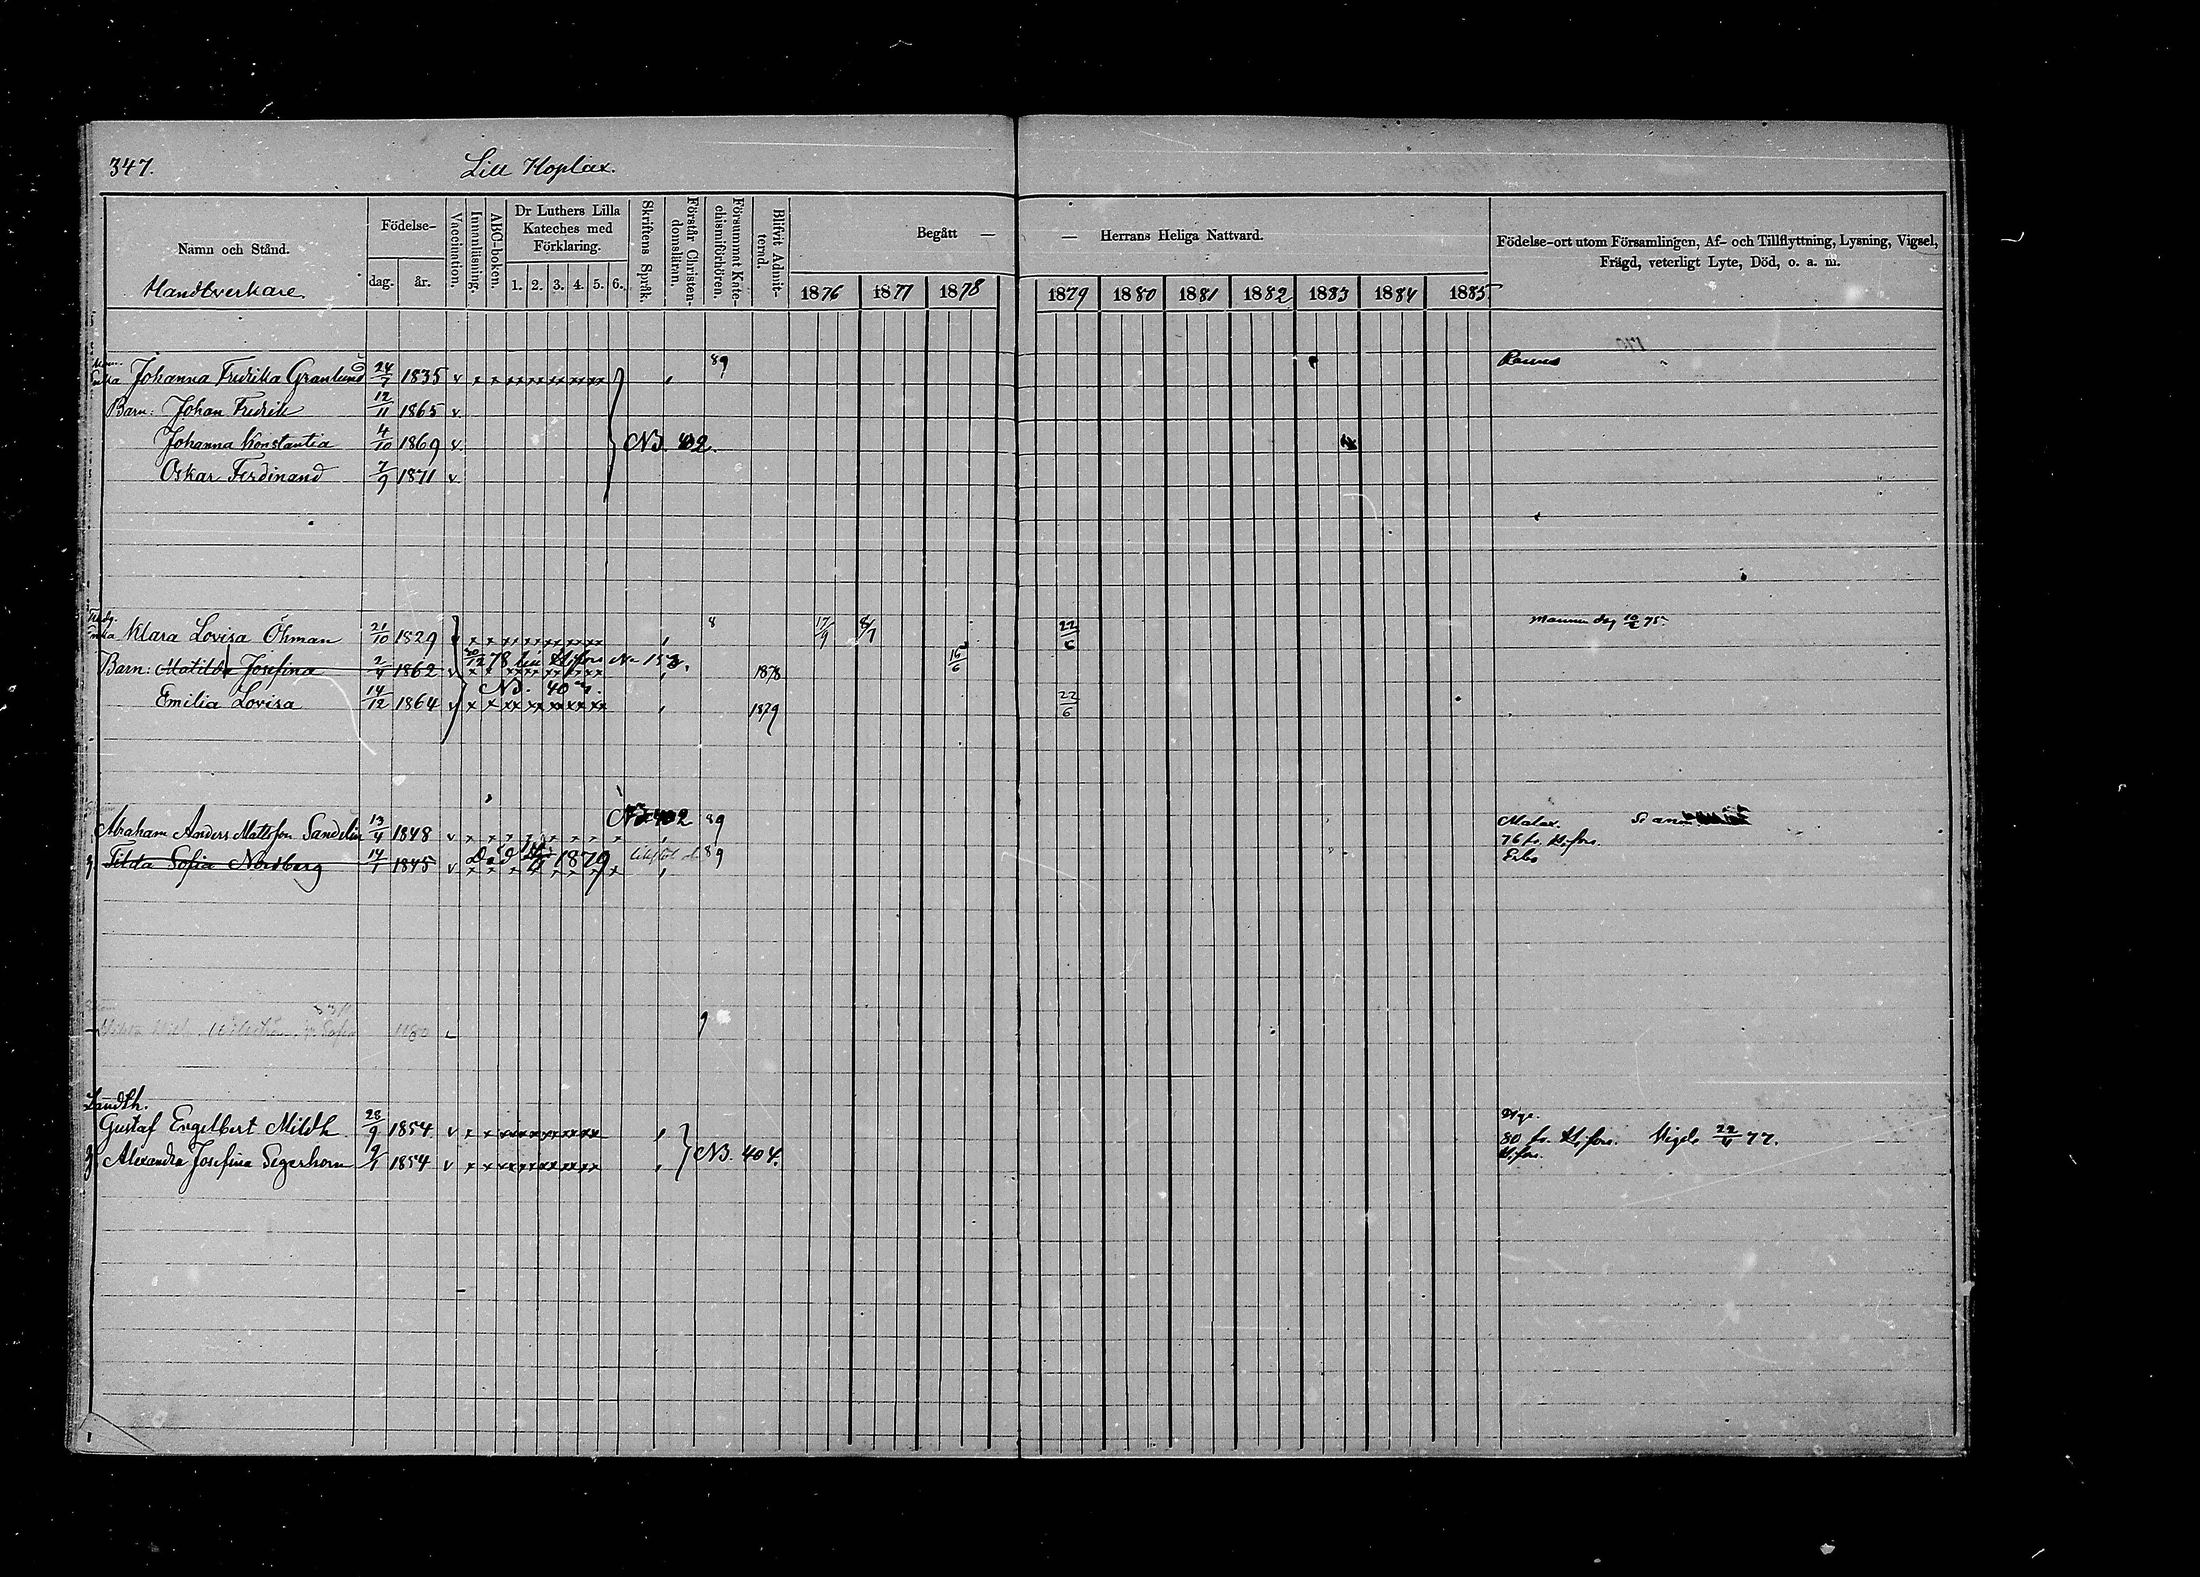 347.
Lill Hoplax.
Namn och Stånd.
Handtverkare.
Födelse-
dag.
år.
Vaccination.
Innanläsning.
ABC-boken.
Dr Luthers Lilla
Kateches med
Förklaring.
1. 2. 3. 4. 5. 6.
Skriftens Språk.
Förstår Christen-
domsläran.
Försummat Kate-
chismiförhören.
Blifvit Admit-
terad.
Begått —
— Herrans Heliga Nattvard.
1876 1877 1878
1879 1880 1881 1882 1883 1884 1885
Födelse-ort utom Församlingen, Af- och Tillflyttning, Lysning, Vigsel,
Frägd, veterligt Lyte, Död, o. a. m.
Enka Johanna Fredrika Granlund 24/7 1835 v x x xx xx xx xx xx 89
Barn: Johan Fredrik 12/11 1865 v
Johanna Konstantia 4/10 1869 v NB. 402.
Oskar Ferdinand 7/9 1871 v
Enka Klara Lovisa Öhman 21/10 1829 v x x xx xx xx xx xx 8 17/9 8/7 22/6 Mannen dog 10/2 75.
Barn: Matilda Josefina 2/4 1862 v 78 H:fors No 153. 1878 16/6
NB. 40
Emilia Lovisa 14/12 1864 v x x xx xx xx xx xx 1879 22/6
NB 402
Abraham Anders Mattsson Sandelin 13/4 1848 v x x x x x x x x 89 Malax.
76 fr. H:fors.
Tilda Sofia Nordberg 14/1 1845 v Död 1879 89 Esbo
1880
Landth.
Gustaf Engelbert Mildh 28/9 1854 v x x xx xx xx xx xx
80 fr. H:fors. Vigde 22/4 77.
Alexandra Josefina Segerborn 9/1 1854 v x x xx xx xx xx xx NB. 404. H:fors.
1